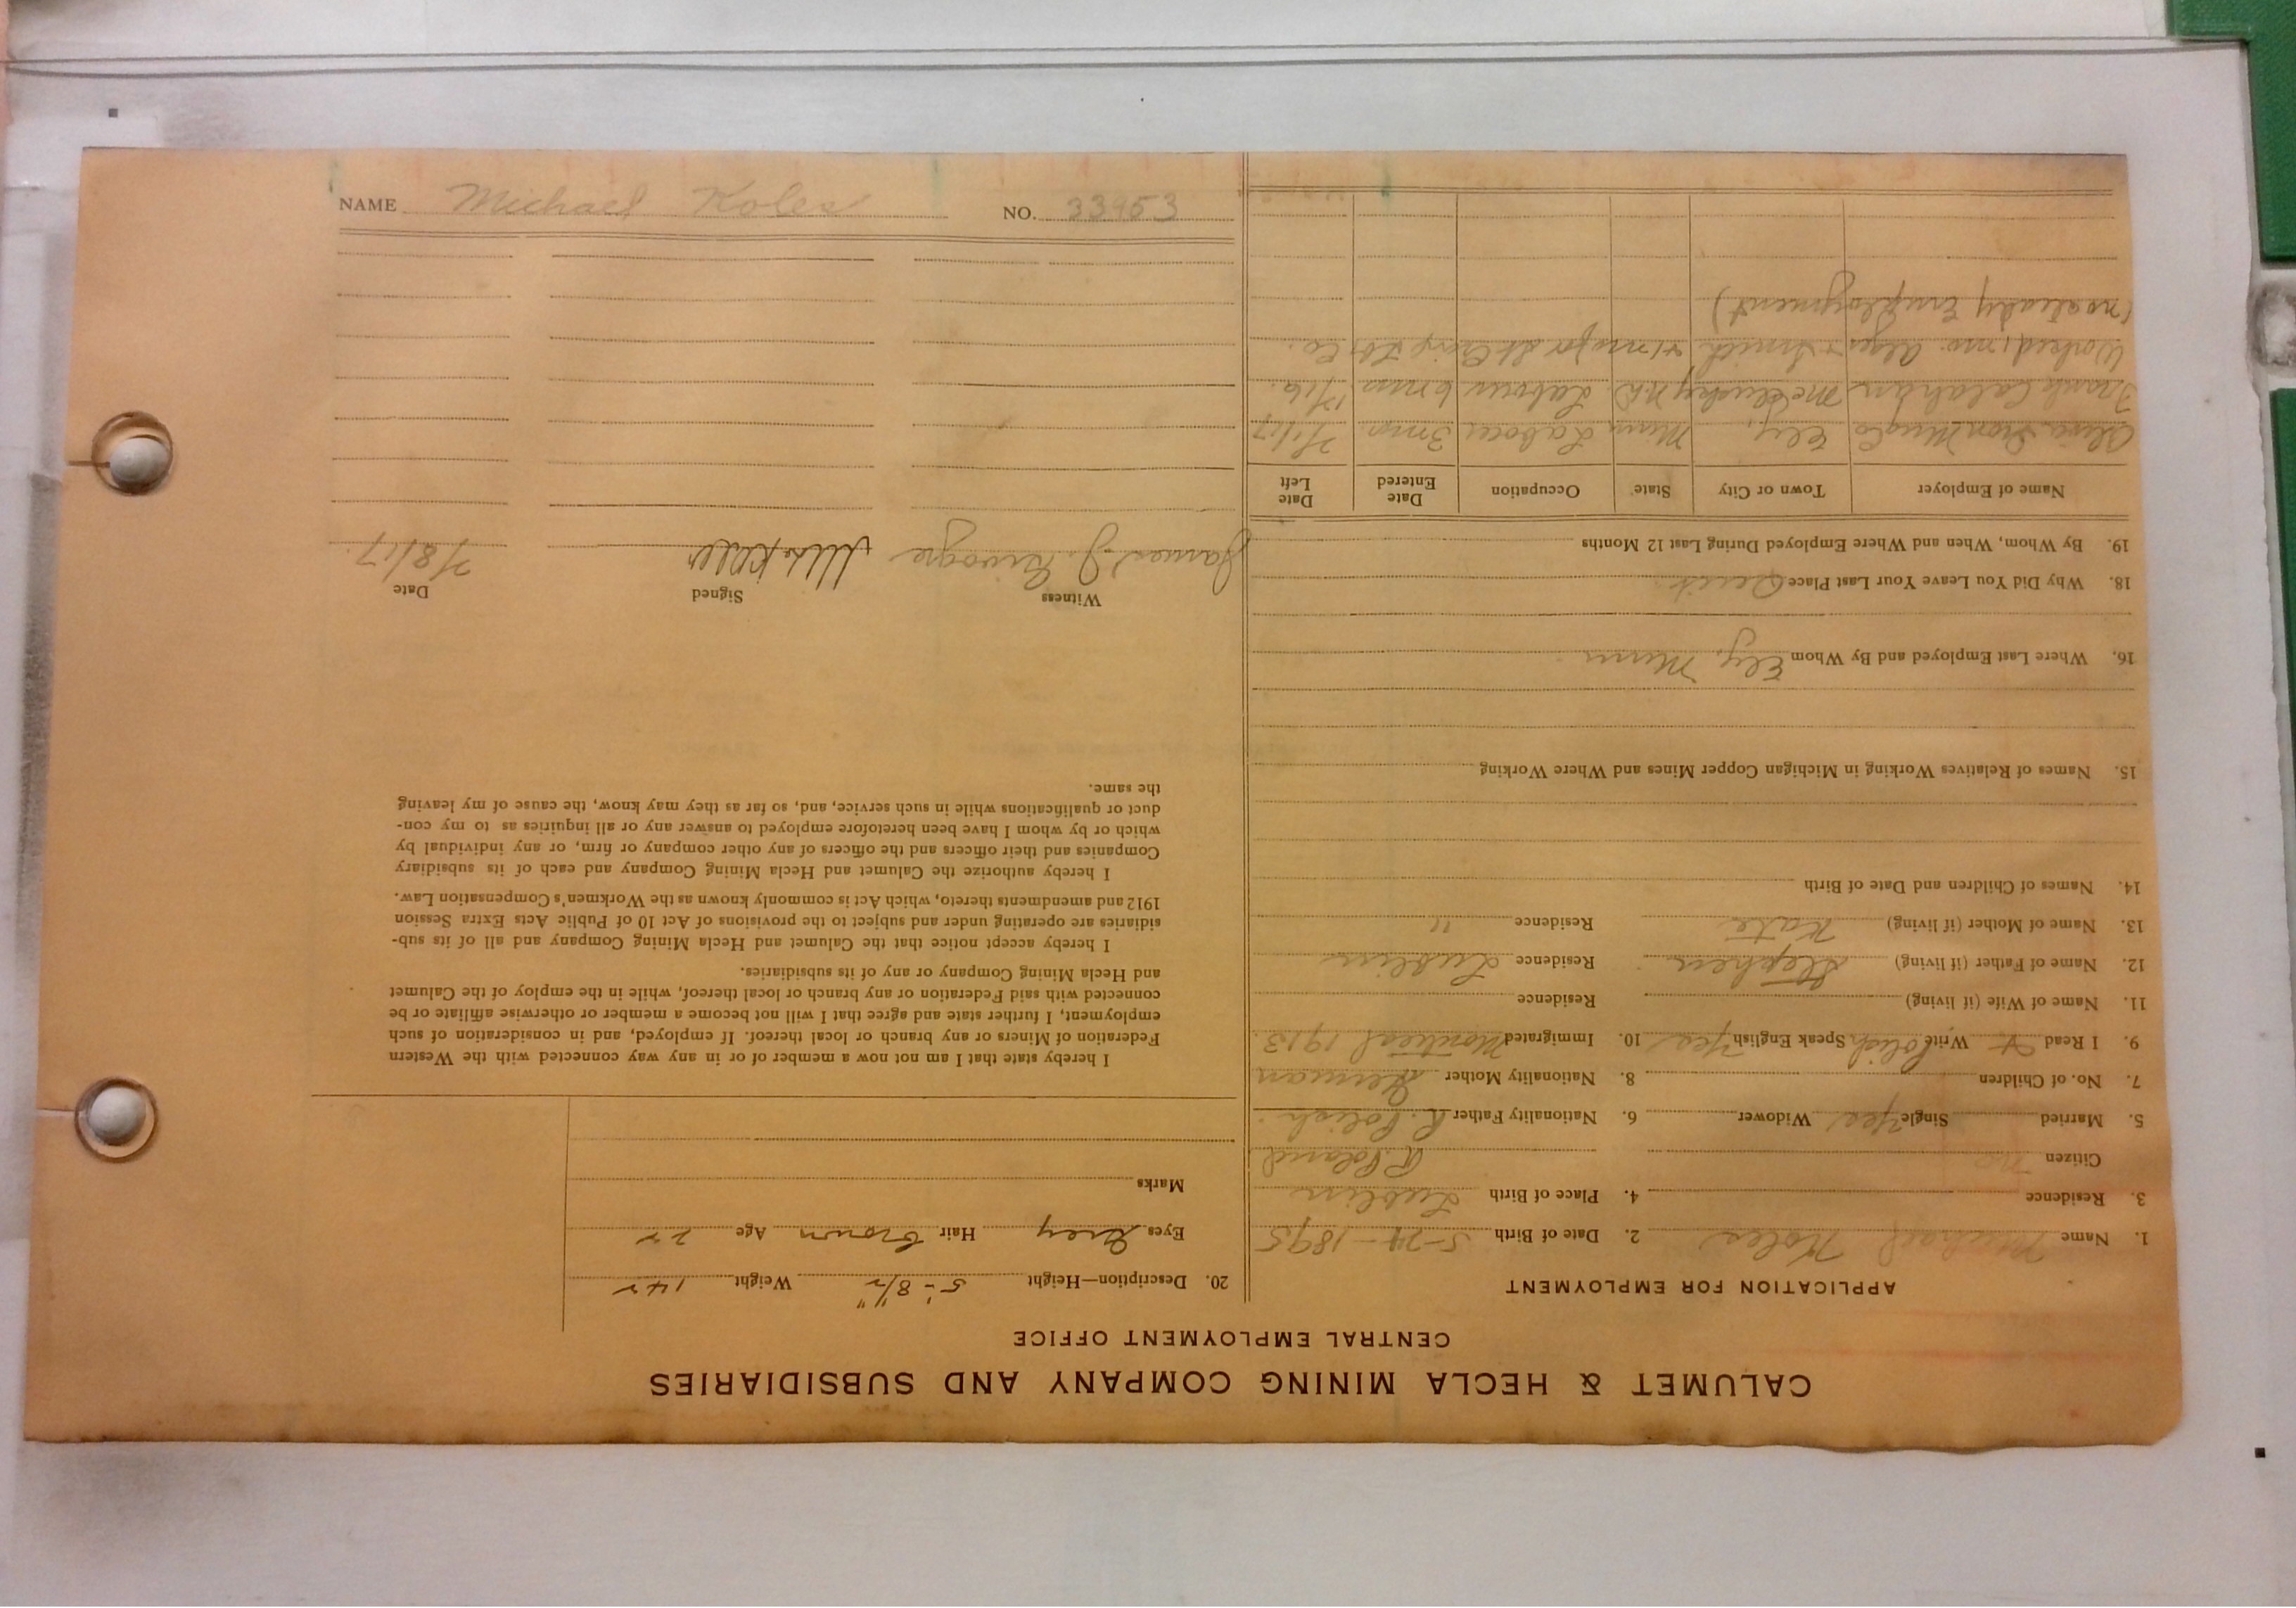 CALUMET & HECLA MINING COMPANY AND SUBSIDIARIES
CENTRAL EMPLOYMENT OFFICE
APPLICATION FOR EMPLOYMENT
1. Name Michael Koles 2. Date of Birth 5-24-1895
3. Residence 4. Place of Birth Lublin
Citizen no R. Poland
5. Married Single Yes Widower 6. Nationality Father R. Polish
7. No. of Children 8. Nationality Mother German
9. I Read + Write Polish Speak English Yes 10. Immigrated Montreal 1913
11. Name of Wife (if living) Residence
12. Name of Father (if living) Stephen Residence Lublin
13. Name of Mother (if living) Kate Residence "
14. Names of Children and Date of Birth
15. Names of Relatives Working in Michigan Copper Mines and Where Working
16. Where Last Employed and By Whom Ely, Minn
18. Why Did You Leave Your Last Place Quit
19. By Whom, When and Where Employed During Last 12 Months
Name of Employer Town or City State Occupation Date Entered Date Left
Iron Mng Co Ely, Minn Labour 3 mos. 7/1/17
Frank Calahan McClusky N.D. Labour 6 mos
Worked 1 mo. Alger + Smith + 1 mo for St Croix Lbr Co.
(no steady Employment)
20. Description—Height 5'-8 1/2" Weight 142
Eyes Grey Hair Brown Age 22
Marks
I hereby state that I am not now a member of or in any way connected with the Western
Federation of Miners or any branch or local thereof. If employed, and in consideration of such
employment, I further state and agree that I will not become a member or otherwise affiliate or be
connected with said Federation or any branch or local thereof, while in the employ of the Calumet
and Hecla Mining Company or any of its subsidiaries.
I hereby accept notice that the Calumet and Hecla Mining Company and all of its sub-
sidiaries are operating under and subject to the provisions of Act 10 of Public Acts Extra Session
1912 and amendments thereto, which Act is commonly known as the Workmen's Compensation Law.
I hereby authorize the Calumet and Hecla Mining Company and each of its subsidiary
Companies and their officers and the officers of any other company or firm, or any individual by
which or by whom I have been heretofore employed to answer any or all inquiries as to my con-
duct or qualifications while in such service, and, so far as they may know, the cause of my leaving
the same.
Witness Signed Date
James J. 7/8/17
NAME Michael Koles NO. 33953